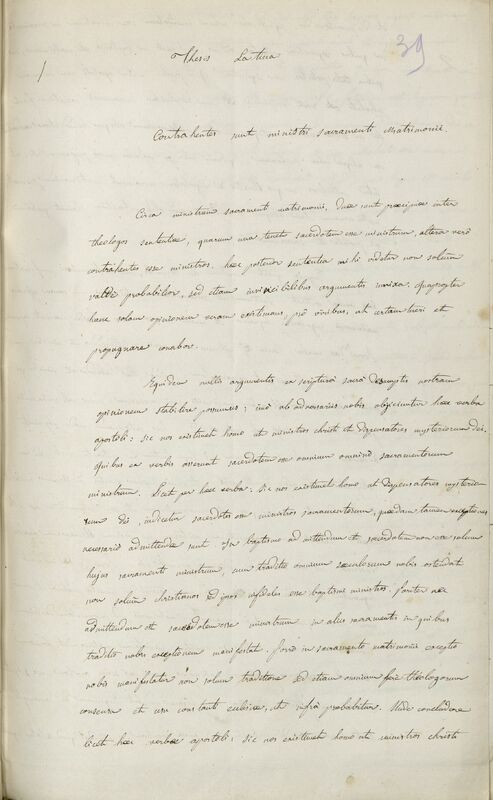 39
Thesis Latina
Contrahentes sunt ministri sacramenti Matrimonii.
Circa ministrum sacramenti matrimonii, duæ sunt præcipuæ inter
theologos sententiæ, quarum una tenet sacerdotem esse ministrum, altera verò
contrahentes esse ministros. hæc posterior sententia mihi videtur non solum
valde probabilior, sed etiam invincibilibus argumentis innixa. Quapropter
hanc solam opinionem veram existimans, pro viribus, ut certam tueri et
propugnare conabor.
Equidem nullis argumentis ex scripturâ sacrâ desumptis nostram
opinionem stabilire possumus; imò ab adversariis nobis objiciuntur hæc verba
apostoli: sic nos existimet homo ut ministros christi et dispensatores mysteriorum dei.
quibus ex verbis asserunt sacerdotem esse omnium omninò sacramentorum
ministrum. Licet per hæc verba: sic nos existimet homo ut dispensatores mysterio
rum dei, indicetur sacerdotes esse ministros sacramentorum, quædam tamen exceptiones
necessariò admittendæ sunt. In baptismo admittendum est sacerdotem non esse solum
hujus sacramenti ministrum, cum traditio omnium sæculorum nobis ostendat
non solum christianos sed quoque infideles esse baptismi ministros. Pariter
admittendum est sacerdotem esse ministrum in aliis sacramentis in quibus
traditio nobis exceptionem manifestat. Porrò in sacramento matrimonii exceptio
nobis manifestatur non solum traditione sed etiam omnium ferè theologorum
consensu et usu constanti ecclesiæ, ut infrà probabitur. Unde concludere
licet hæc verba apostoli: sic nos existimet homo ut ministros christi